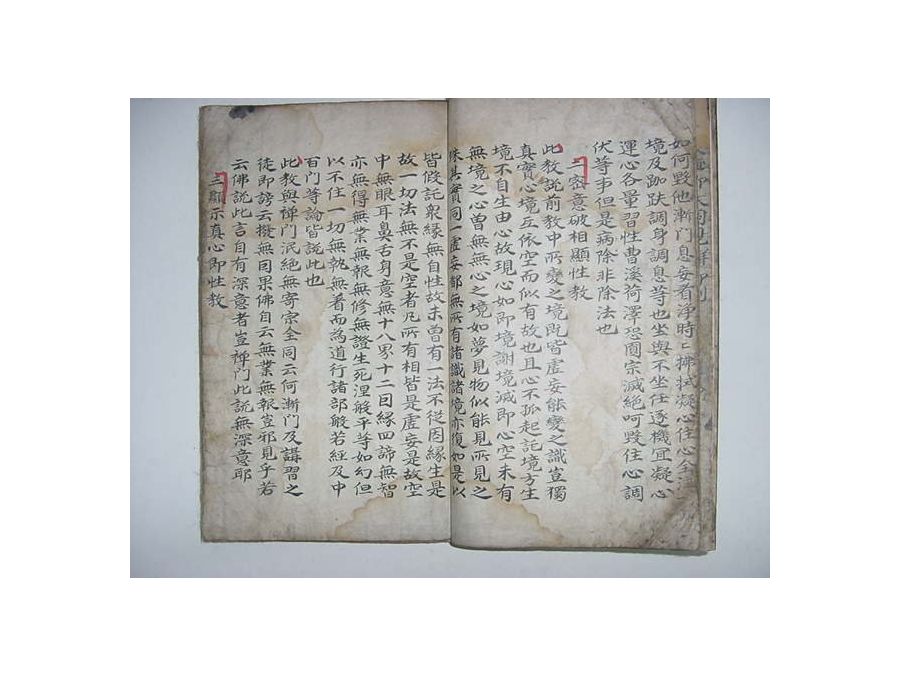 如何毀他漸門息妄看淨時〻拂拭凝心住心全
境及跏趺調身調息等也坐與不坐任逐機宜凝心
運心各量習性曹溪荷澤恐圓宗滅絕呵毀住心調
伏等事但是病除非除法也
二密意破相顯性教
此教說前教中所變之境既皆虛妄能變之識豈獨
真實心境互依空而似有故也且心不孤起託境方生
境不自生由心故現心如即境謝境滅即心空未有
無境之心曾無無心之境如夢見物似能見所見之
殊其實同一虛妄都無所有諸識諸境亦復如是以
皆假託衆緣無自性故未曾有一法不從因緣生是
故一切法無不是空者凡所有相皆是虛妄是故空
中無眼耳鼻舌身意無十八界十二因緣四諦無智
亦無得無業無報無修無證生死涅槃平等如幻但
以不住一切無執無着而為道行諸部般若經及中
百門等論皆說此也
此教與禪門泯絕無寄宗全同云何漸門及講習之
徒即謗云撥無因果佛自云無業無報豈邪見乎若
云佛說此言自有深意者豈禪門此說無深意耶
三顯示真心即性教